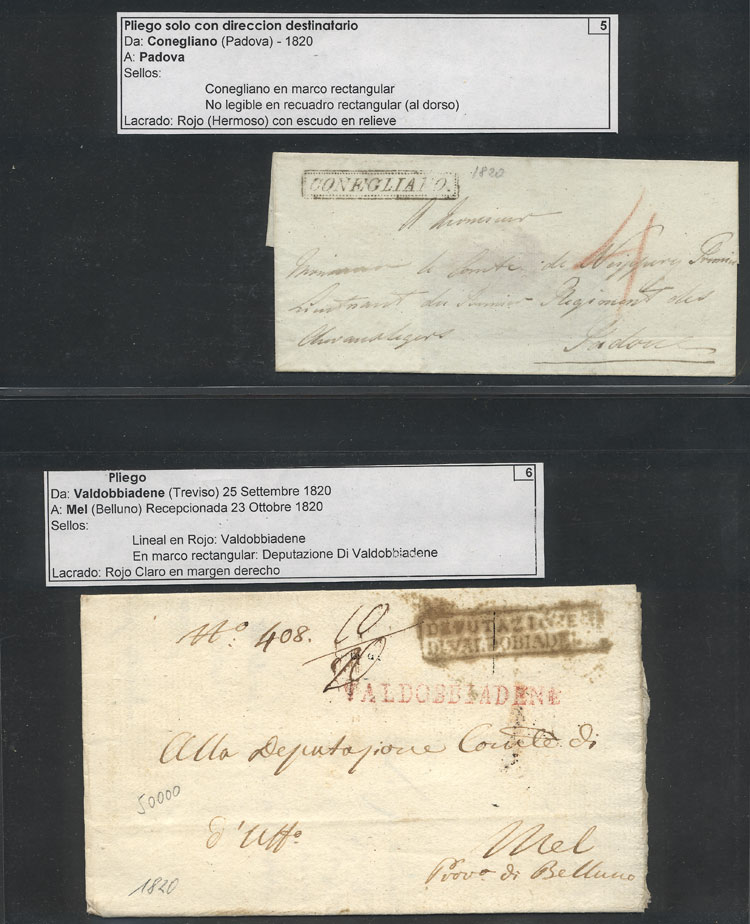 Pliego solo con direccion destinatario
5
Da: Conegliano (Padova) - 1820
A: Padova
Sellos:
Conegliano en marco rectangular
No legible en recuadro rectangular (al dorso)
Lacrado: Rojo (Hermoso) con escudo en relieve
CONEGLIANO.
1820
A Monsieur
Monsieur le Comte de
Lieutnant du Regiment des
Padoue
Pliego
6
Da: Valdobbiadene (Treviso) 25 Settembre 1820
A: Mel (Belluno) Recepcionada 23 Ottobre 1820
Sellos:
Lineal en Rojo: Valdobbiadene
En marco rectangular: Deputazione Di Valdobbiadene
Lacrado: Rojo Claro en margen derecho
No. 408. 10
20
DEPUTAZIONE
DI VALDOBIADE
VALDOBBIADENE
Alla Deputazione Comle di
50000
d'Uffo
Mel
Provа di Belluno
1820